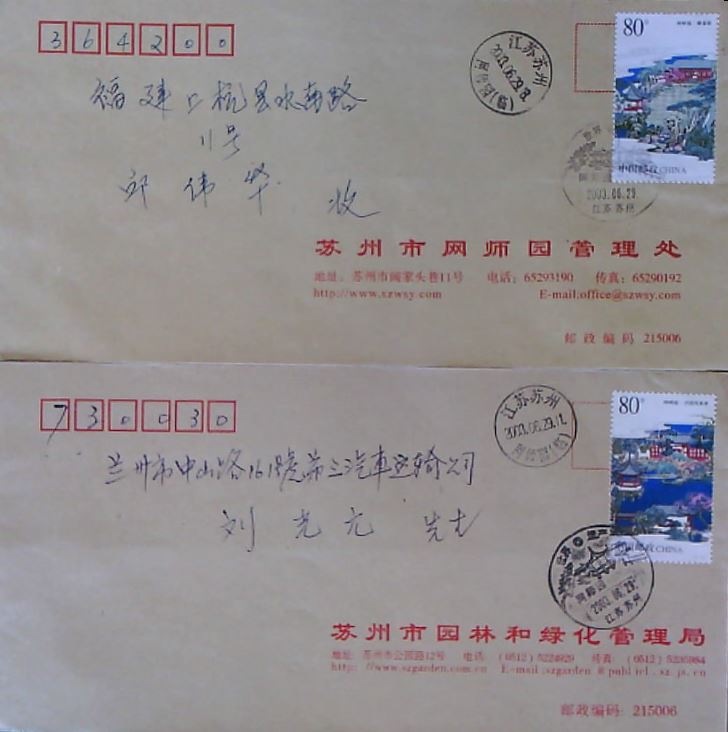 364200
福建上杭县水南路
11号
邱伟华 收
江苏苏州
2003.06.29.18
80分
中国邮政 CHINA
2003.06.29.
江苏苏州
苏州市网师园管理处
地址: 苏州市阔家头巷11号 电话: 65293190 传真: 65290192
http://www.szwsy.com E-mail:office@szwsy.com
邮政编码 215006
730030
兰州市中山路161号第三汽车运输公司
刘光元 先生
江苏苏州
2003.06.29.
80分
中国邮政 CHINA
网师园
2003.06.29.
江苏苏州
苏州市园林和绿化管理局
地址: 苏州市公园路12号 电话: (0512) 5224929 传真: (0512)
http: //www.szgarden.com.cn E-mail:szgarden @ publicl. sz. js. cn
邮政编码: 215006